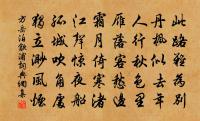 此路難為別
丹楓似去年
人行秋色裏
雁落客愁邊
霜月倚寒渚
江聲驚夜船
孤城吹角處
獨立渺風煙
方岳泊歙浦詞典網書